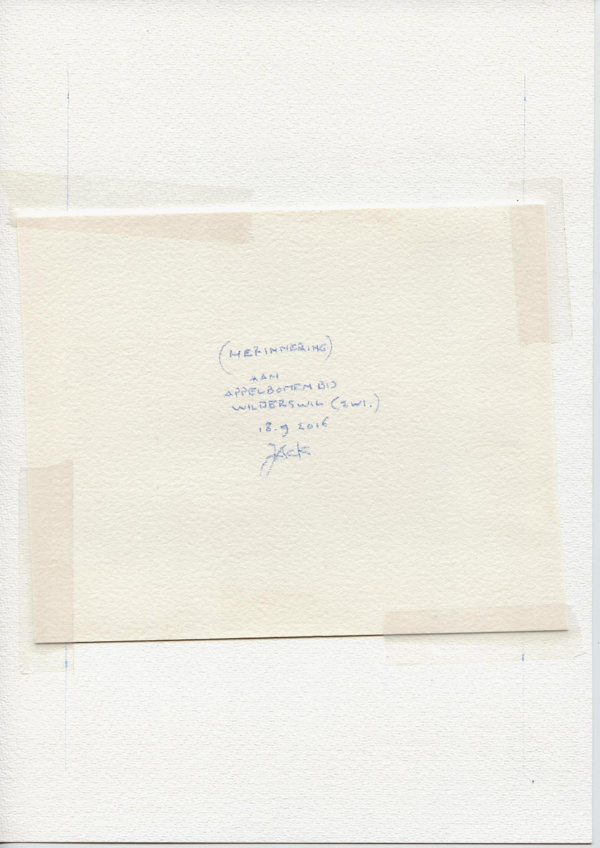 (HERINNERING)
AAN
APPELBOMEN BIJ
WILDERSWIL (ZWI.)
18.9 2016
Jack